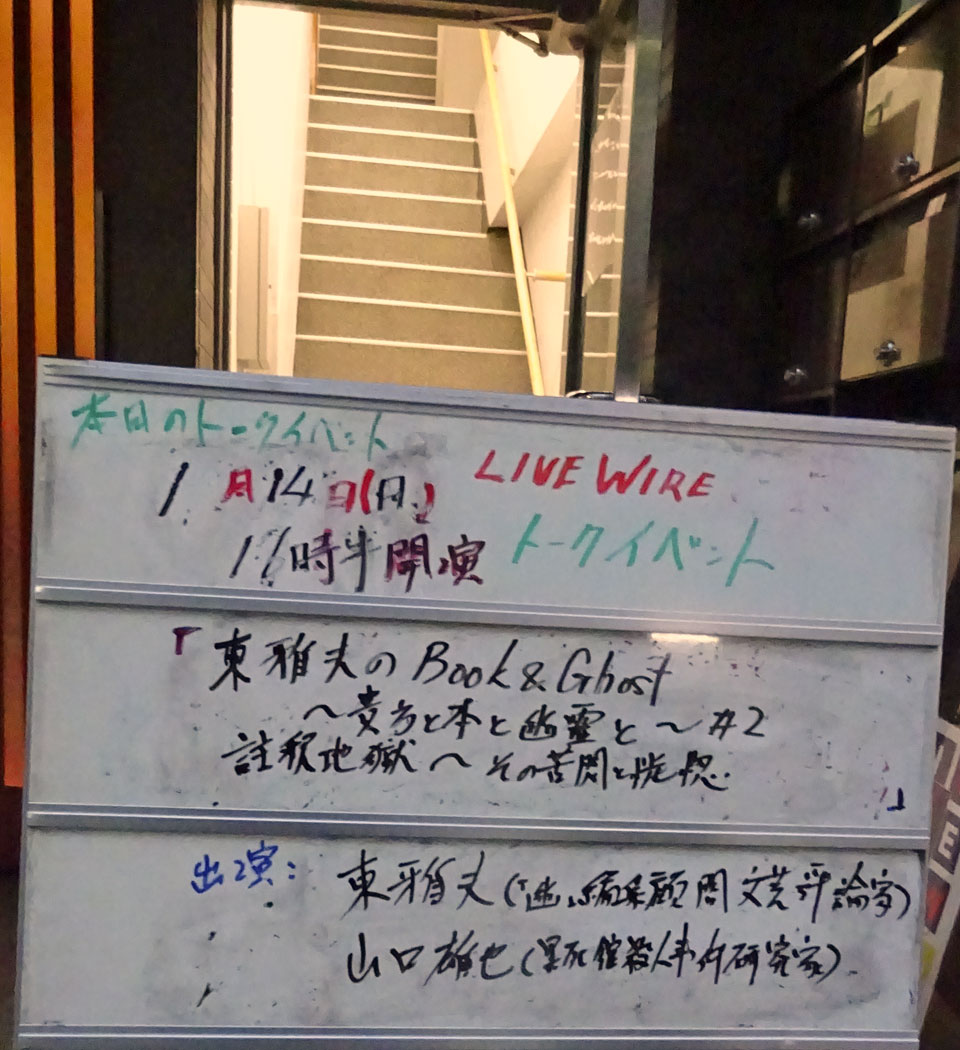 本日のトークイベント
1月14日(日)
LIVE WIRE
16時半開演
トークイベント
『東雅夫のBook & Ghost
〜貴方と本と幽霊と〜#2
註釈地獄〜その苦悶と恍惚
』
出演:
東雅夫(「幽」編集顧問 文芸評論家)
山口雄也(黒死館殺人事件研究家)
M
E